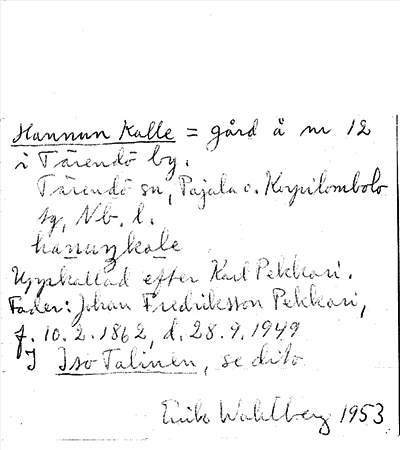 Hannun Kalle = gård å nr 12
i Tärendö by.
Tärendö sn, Pajala o. Korpilombolo
tg, Nb. l.
hanuŋkale
Uppkallad efter Karl Pekkari.
Fader: Johan Fredriksson Pekkari,
f. 10.2.1862, d. 28.9.1949
I Iso Talinen, se dito.
Erik Wahlberg 1953